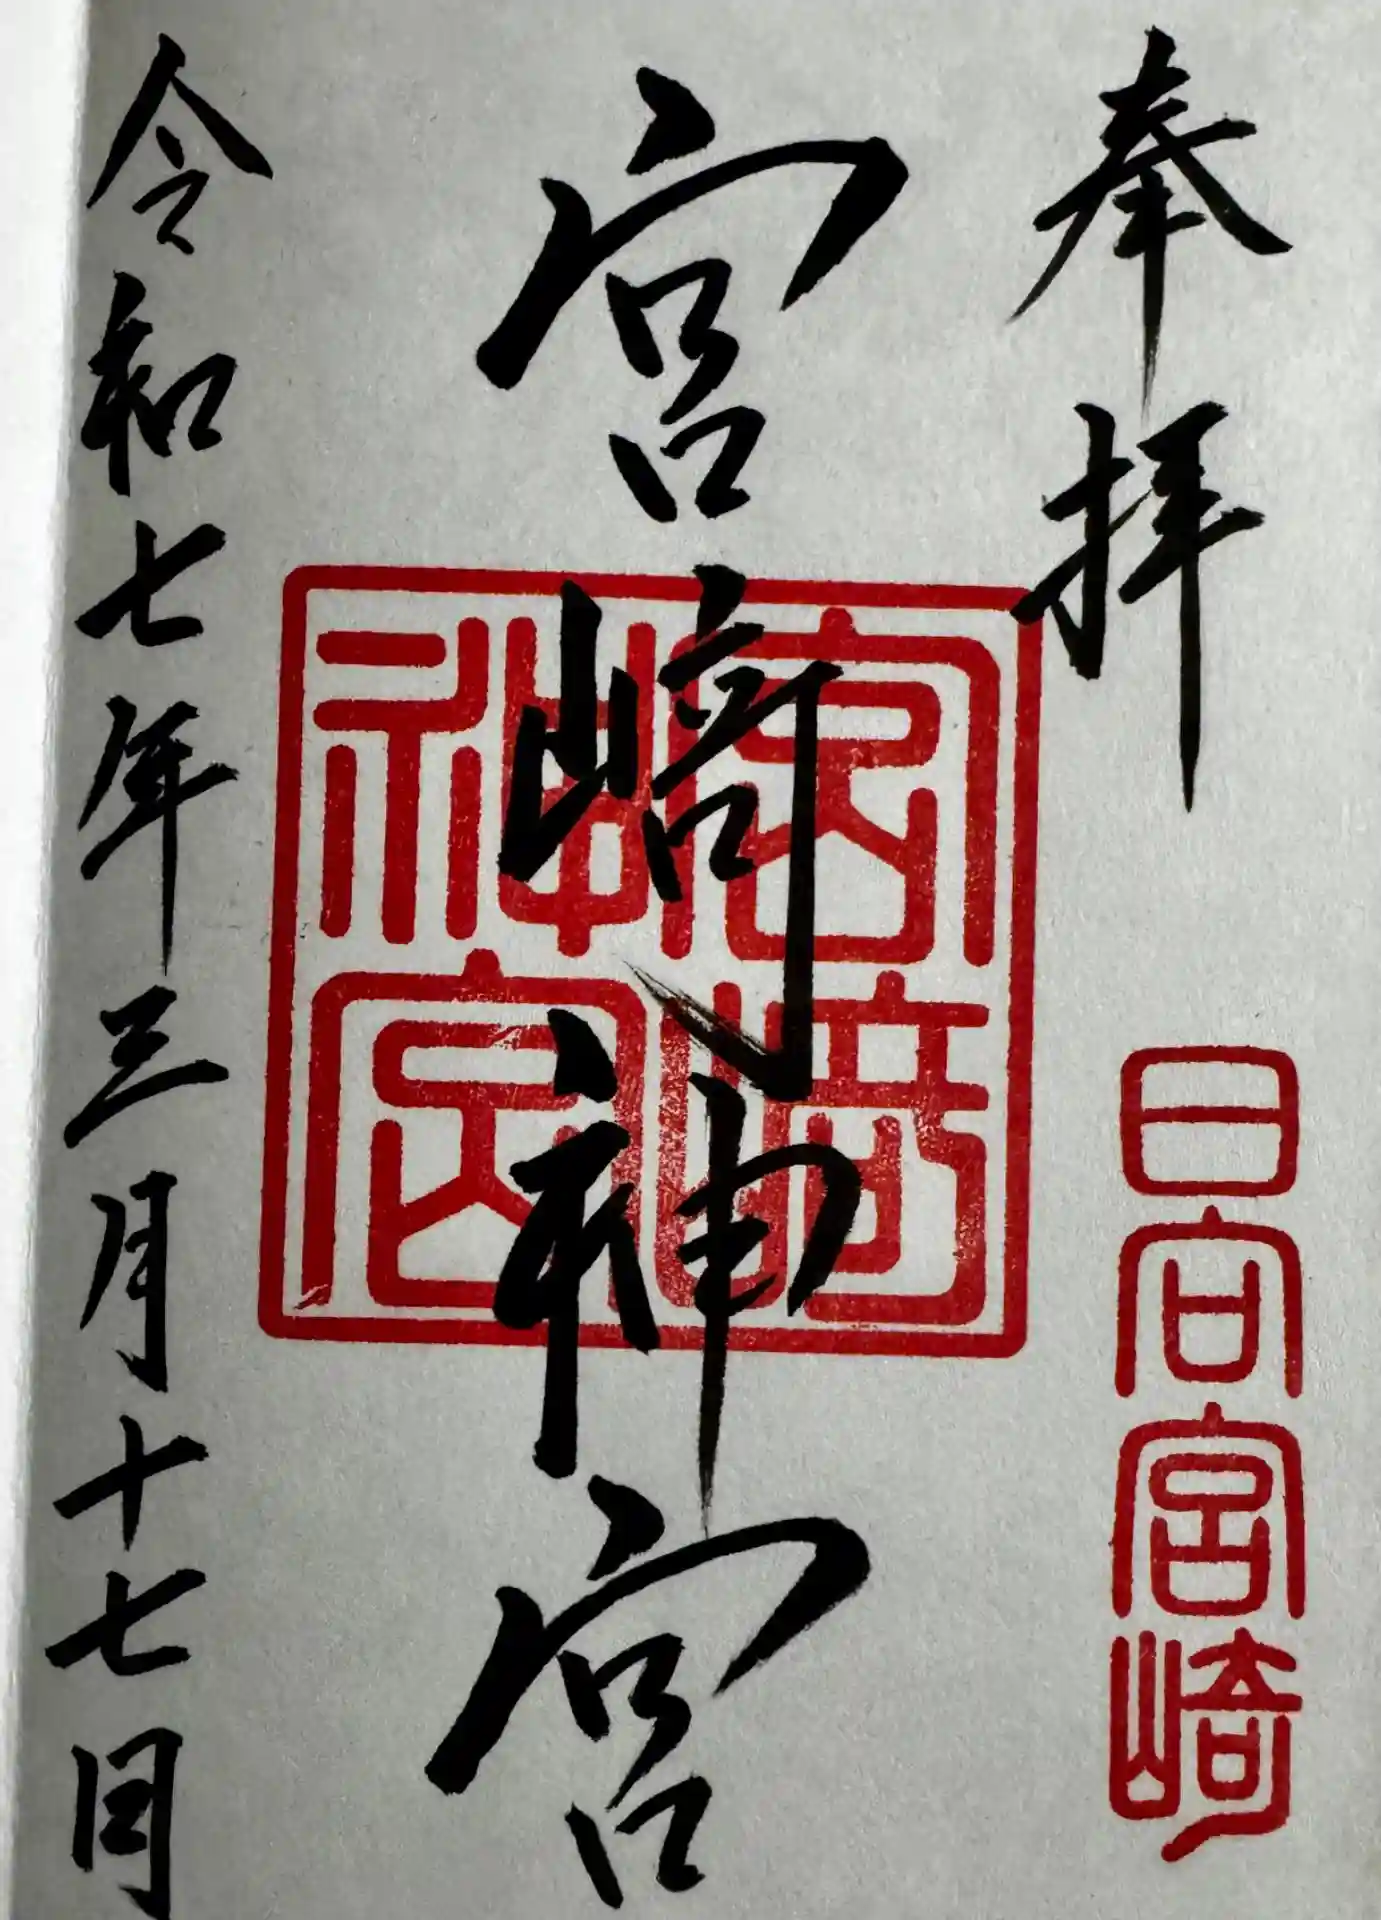 奉拝
日向宮崎
宮﨑神宮
宮﨑
神宮
令和七年三月十七日